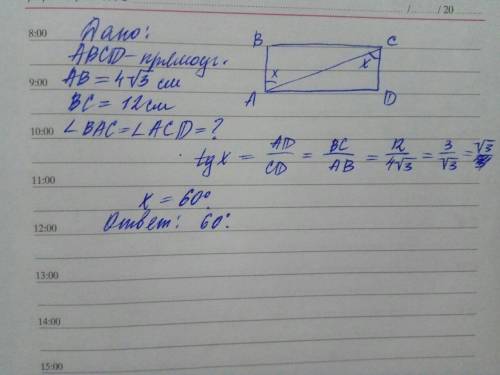 / / 20
8:00 Дано:
ABCD - прямоуг.
9:00 AB = 4√3 см
BC = 12 см
10:00 ∠BAC = ∠ACD = ?
B C
x x
A D
tg x = AD/CD = BC/AB = 12/4√3 = 3/√3 = √3
11:00
x = 60°
Ответ: 60°.
12:00
13:00
14:00
15:00